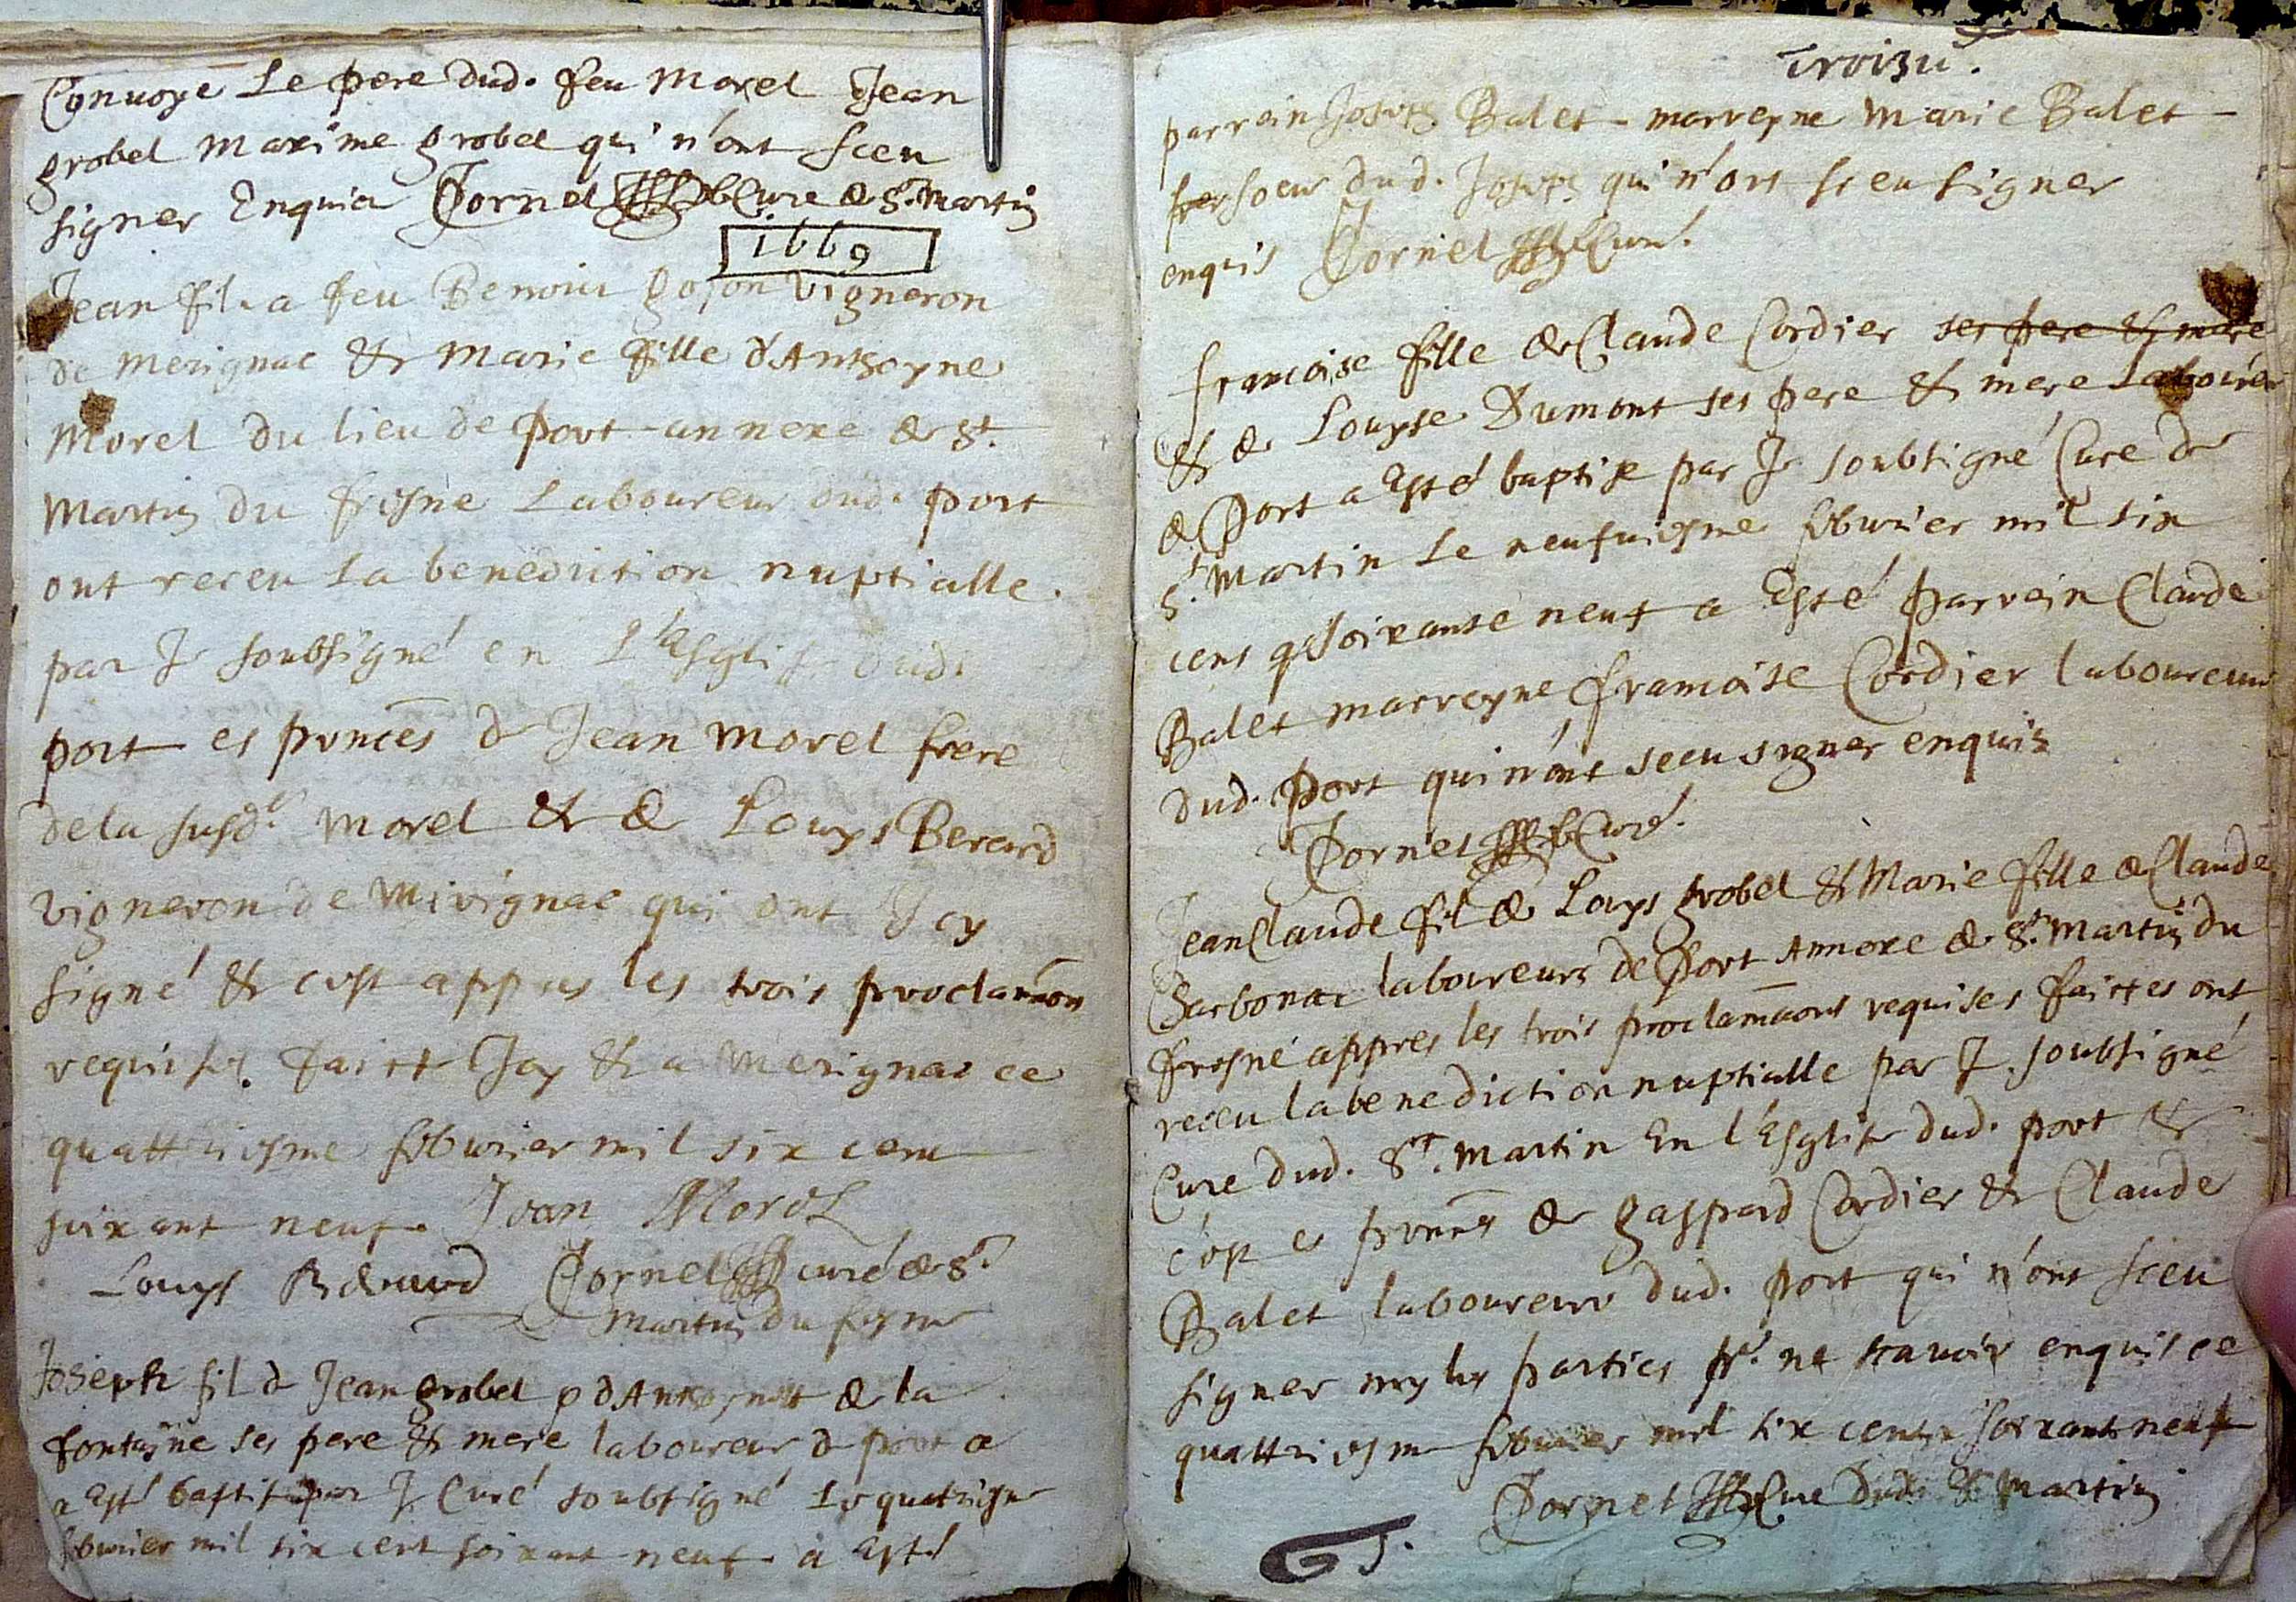 Convoye Le pere dud. feu Morel Jean
grobel Maxime grobel qui n'ont sceu
signer Enquis Cornet Curé de St. Martin
1669
Jean fil a feu Benoict gojon vigneron
de Merignac & Marie fille d'Anthoyne
Morel du lieu de port annexe de St.
Martin du fresne Laboureur dud. port
ont receu La benediction nuptialle.
par Je soubsigné en L'Esglise dud.
port es pnces de Jean Morel frere
dela susd. Morel & de Louys Berard
vigneron de Mirignac qui ont Icy
signé & c'est appres les trois proclamaons
requises. faict Icy & a Merignac ce
quattriesme febvrier mil six cent
soixant neuf. Jean Morel
Louys Berard Cornet curé de St.
Martin du fresne
Joseph fil de Jean grobel & d'Anthoynette de la
fontayne ses pere & mere laboureur de port
a esté baptisé par Je Curé soubsigné Le quatriesme
febvrier mil six cent soixant neuf. a Esté
Troizie.
parrein Joseph Balet marreyne Marie Balet
soeur dud. Joseph qui n'ont sceu signer
enquis Cornet Curé.
francoise fille de Claude Cordier ses pere & mere
& de Louyse Dumont ses pere & mere Labourer
de Port a Esté baptise par Je soubsigné Curé de
St. Martin Le neufviesme febvrier mil six
cens soixante neuf a Esté parrein Claude
Balet marreyne francoise Cordier laboureur
dud. Port qui n'ont sceu signer enquis
Cornet Curé.
Jean Claude fil de Louys grobel & Marie fille de Claude
Charbonac laboureurs de Port Annexe de St. Martin du
fresne appres les trois proclamaons requises faictes ont
receu la benediction nuptialle par Je soubsigné
Curé dud. St. Martin En l'Esglise dud. port &
c'est es pnces de gaspard Cordier & Claude
Balet laboureurs dud. port qui n'ont sceu
signer ny les parties pr. ne scavoir enquis ce
quattriesme febvrier mil six cents soixante neuf
Cornet Curé dud. St. Martin